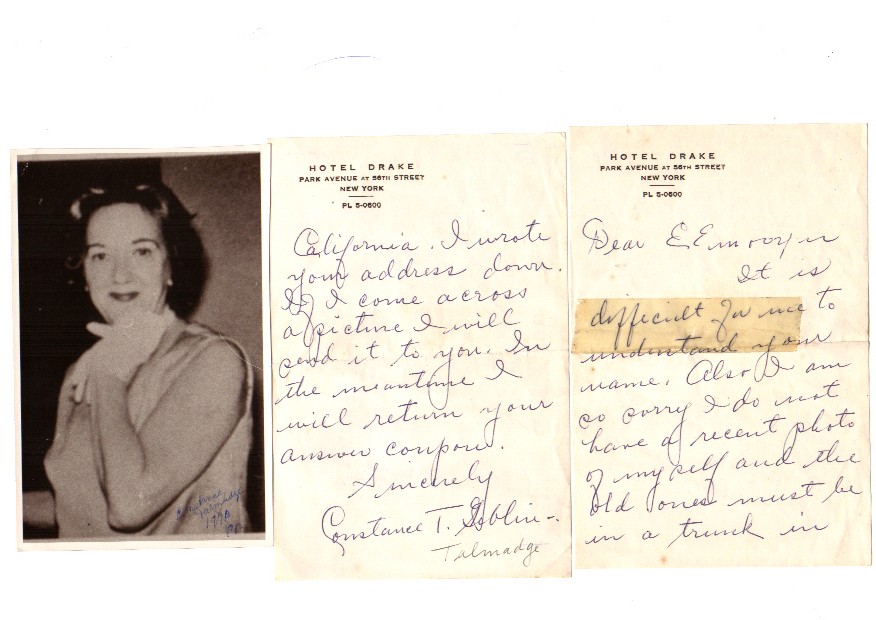 HOTEL DRAKE
PARK AVENUE AT 56TH STREET
NEW YORK
PL 5-0600
Dear E
It is
difficult for me to
understand your
name. Also I am
so sorry I do not
have a recent photo
of myself and the
old ones must be
in a trunk in
HOTEL DRAKE
PARK AVENUE AT 56TH STREET
NEW YORK
PL 5-0600
California. I wrote
your address down.
If I come across
a picture I will
send it to you. In
the meantime I
will return your
answer coupon.
Sincerely
Constance T. Giblin-.
Talmadge
Constance
Talmadge
1970